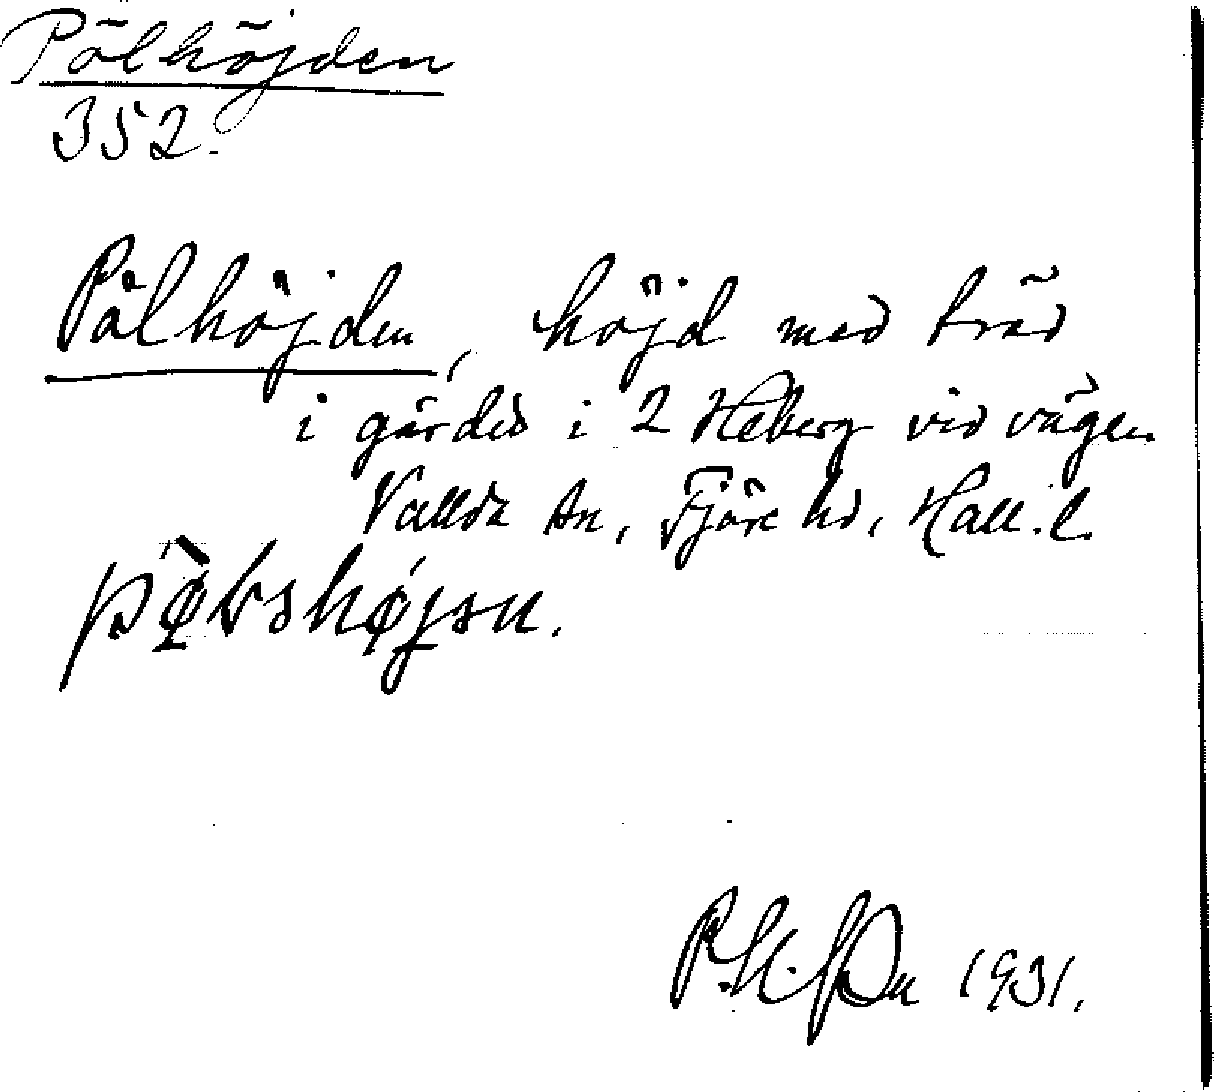 Pölhöjden
352.
Pålhöjden, höjd med träd
i gärdes i 2 Heberg vid vägen
Vallda sn, Fjäre hd, Hall. l.
1931.